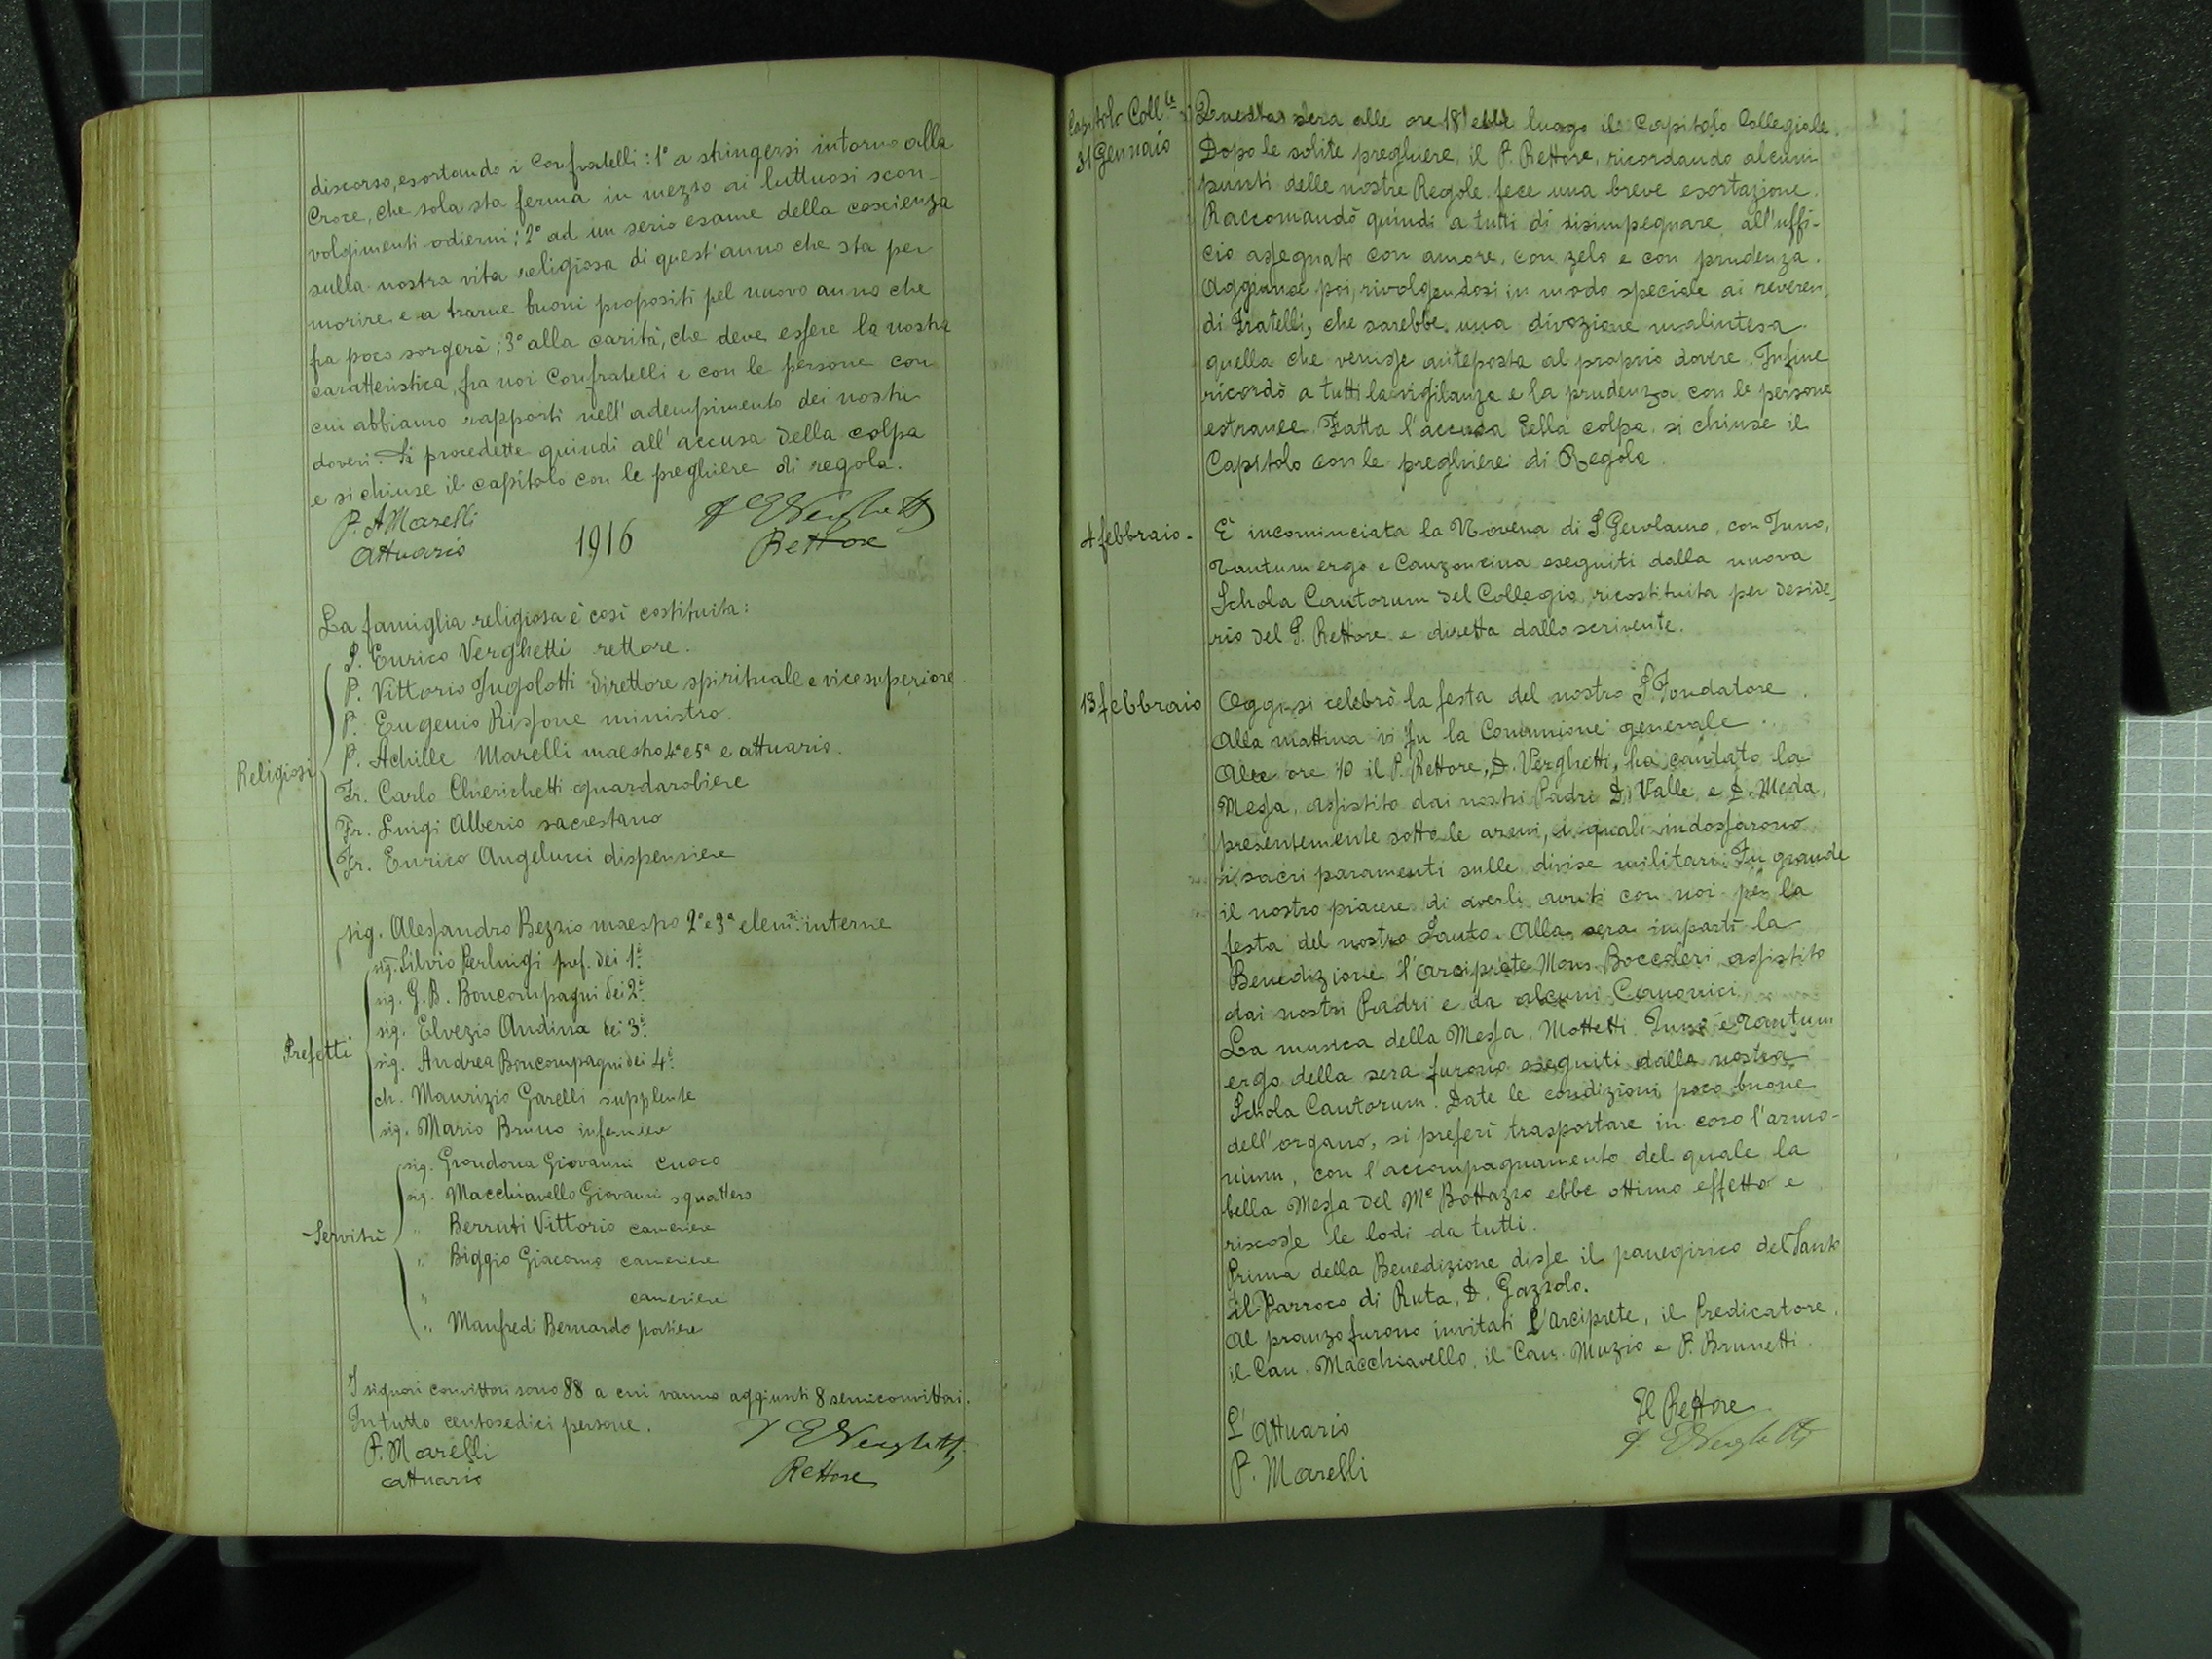 discorso, esortando i Confratelli: 1° a stringersi intorno alla
Croce, che sola sta ferma in mezzo ai luttuosi scon-
volgimenti odierni; 2° ad un serio esame della coscienza
sulla nostra vita religiosa di quest'anno che sta per
morire e a trarne buoni propositi pel nuovo anno che
fra poco sorgerà; 3° alla carità, che deve essere la nostra
caratteristica, fra noi Confratelli e con le persone con
cui abbiamo rapporti nell'adempimento dei nostri
doveri. Si procedette quindi all'accusa della colpa
e si chiuse il capitolo con le preghiere di regola.
P. A Marelli
attuario
P E Verghetti
Rettore
1916
La famiglia religiosa è così costituita:
Religiosi
P. Enrico Verghetti rettore.
P. Vittorio Ingolotti direttore spirituale e vicesuperiore
P. Eugenio Rissone ministro.
P. Achille Marelli maestro 4ª e 5ª e attuario.
Fr. Carlo Chierichetti guardarobiere
Fr. Luigi Alberio sacrestano
Fr. Enrico Angelucci dispensiere
Prefetti
sig. Alessandro Bezzio maestro 2ª e 3ª elem. interne
sig. Silvio Perluigi pref. dei 1i
sig. G.B. Boncompagni dei 2i
sig. Elvezio Andina dei 3i
sig. Andrea Boncompagni dei 4i
ch. Maurizio Garelli supplente
sig. Mario Bruno infermiere
Servitù
sig. Grondona Giovanni cuoco
sig. Macchiavello Giovanni squattero
" Berruti Vittorio cameriere
" Biggio Giacomo cameriere
" cameriere
" Manfredi Bernardo portiere
I signori convittori sono 88 a cui vanno aggiunti 8 semiconvittori.
In tutto centosedici persone.
P. Marelli
attuario
P E Verghetti
Rettore
Capitolo Coll.le
31 Gennaio
Questa sera alle ore 18 ebbe luogo il Capitolo Collegiale.
Dopo le solite preghiere, il P. Rettore, ricordando alcuni
punti delle nostre Regole fece una breve esortazione.
Raccomandò quindi a tutti di disimpegnare all'uffi-
cio assegnato con amore, con zelo e con prudenza.
Aggiunse poi, rivolgendosi in modo speciale ai reveren-
di Fratelli, che sarebbe una divozione malintesa
quella che venisse anteposta al proprio dovere. Infine
ricordò a tutti la vigilanza e la prudenza con le persone
estranee. Fatta l'accusa della colpa si chiuse il
Capitolo con le preghiere di Regola.
4 febbraio -
È incominciata la Novena di S. Gerolamo, con Inno,
Tantum ergo e Canzoncina eseguiti dalla nuova
Schola Cantorum del Collegio ricostituita per deside-
rio del P. Rettore e diretta dallo scrivente.
13 febbraio
Oggi si celebrò la festa del nostro S. Fondatore.
Alla mattina vi fu la Comunione generale.
Alle ore 10 il P. Rettore, D. Verghetti, ha cantato la
Messa, assistito dai nostri Padri D. Valle e D. Meda,
presentemente sotto le armi, i quali indossarono
i sacri paramenti sulle divise militari. Fu grande
il nostro piacere di averli avuti con noi per la
festa del nostro Santo. Alla sera impartì la
Benedizione l'Arciprete Mons. Boccoleri assistito
dai nostri Padri e da alcuni Canonici
La musica della Messa, Mottetti Inno e Tantum
ergo della sera furono eseguiti dalla nostra
Schola Cantorum. Date le condizioni poco buone
dell'organo, si preferì trasportare in coro l'armo-
nium, con l'accompagnamento del quale la
bella Messa del M° Bottazzo ebbe ottimo effetto e
riscosse le lodi da tutti.
Prima della Benedizione disse il panegirico del Santo
il Parroco di Ruta, D. Gazzolo.
Al pranzo furono invitati l'Arciprete, il Predicatore,
il Can. Macchiavello, il Can. Muzio e P. Brunetti.
L'Attuario
P. Marelli
Il Rettore
P. E Verghetti